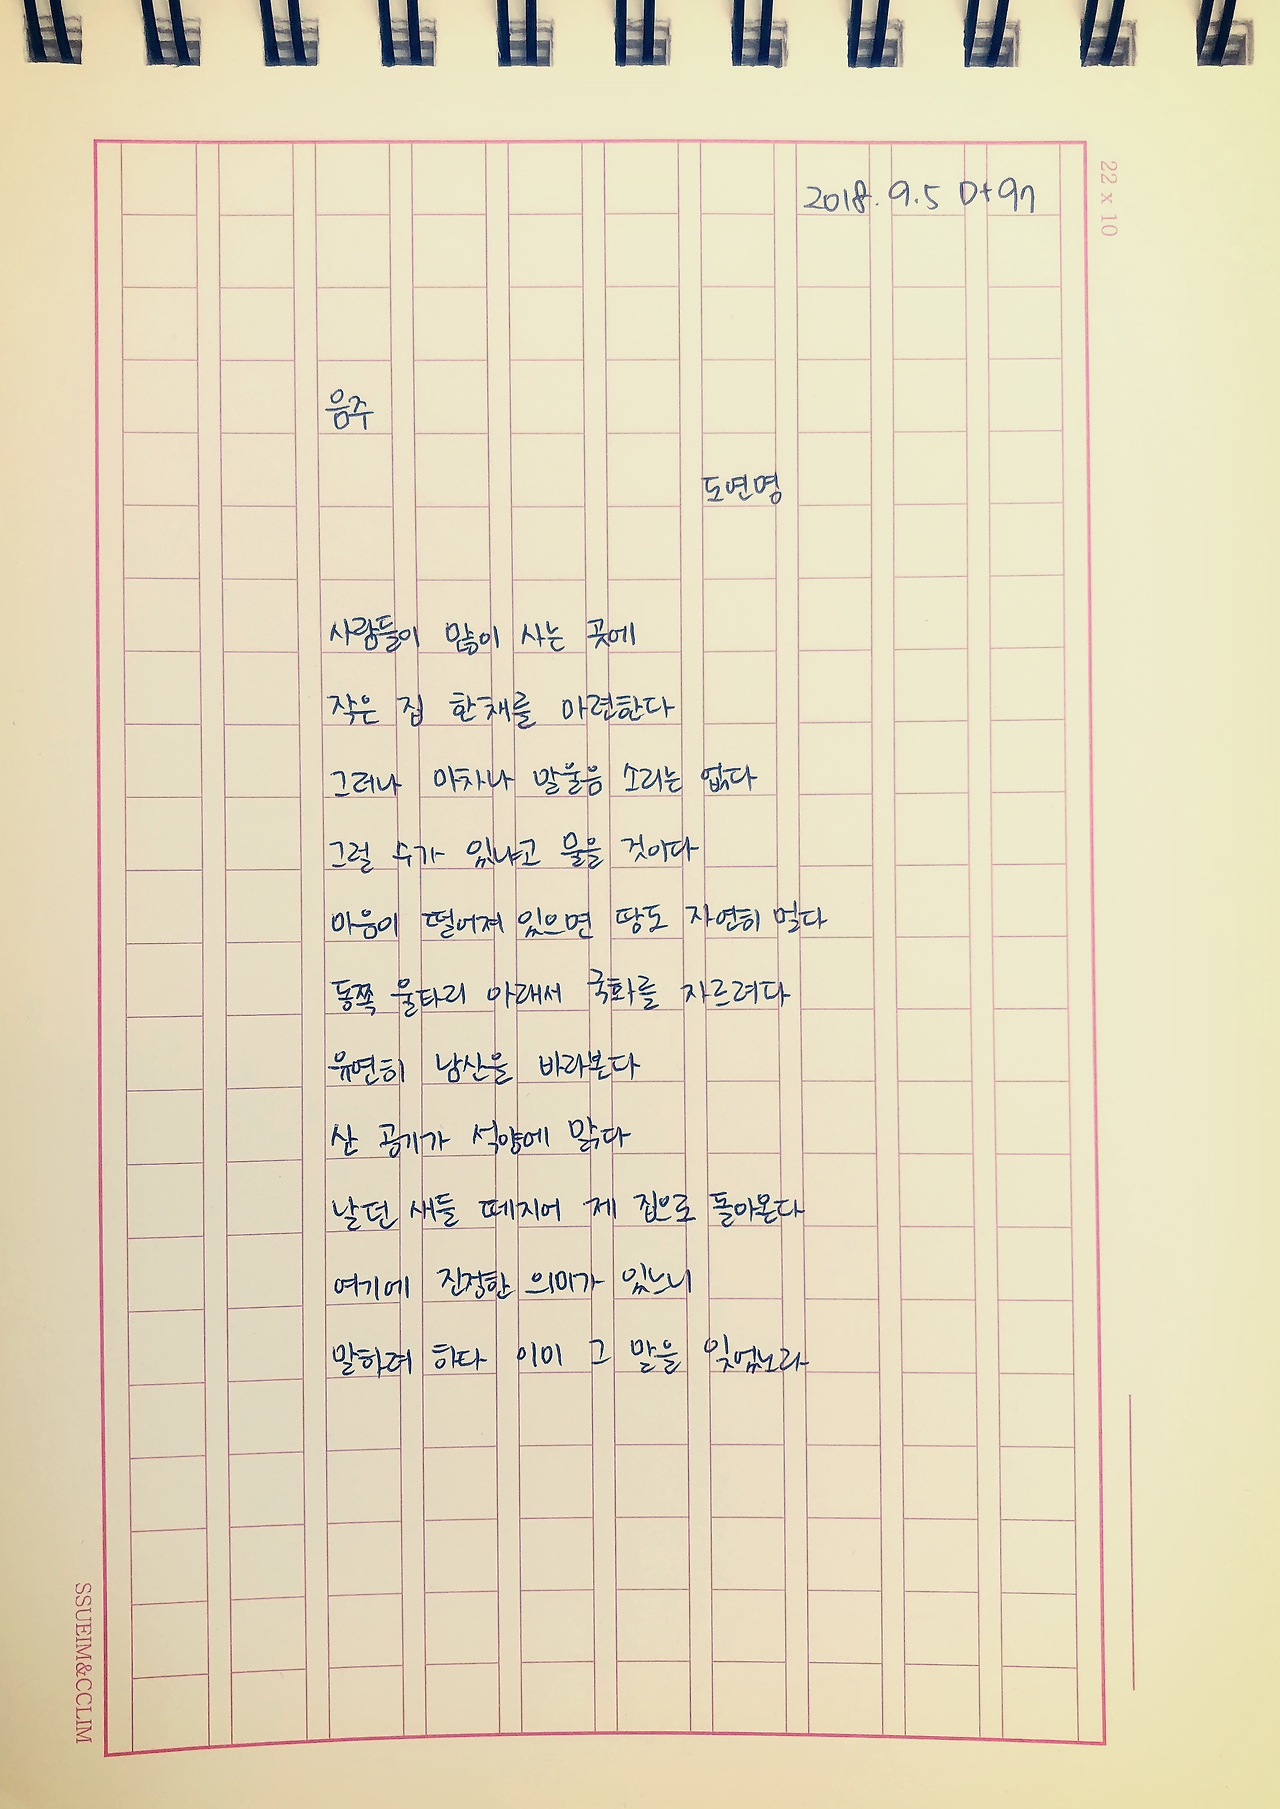 2018. 9. 5 D+97
22 x 10
음주
도연명
사람들이 많이 사는 곳에
작은 집 한채를 마련한다
그러나 마차나 말울음 소리는 없다
그럴 수가 있냐고 물을 것이다
마음이 떨어져 있으면 땅도 자연히 멀다
동쪽 울타리 아래서 국화를 자르려다
유연히 남산을 바라본다
산 공기가 석양에 맑다
날던 새들 떼지어 제 집으로 돌아온다
여기에 진정한 의미가 있느니
말하려 하다 이미 그 말을 잊었노라
SSUEIM&CCLIM